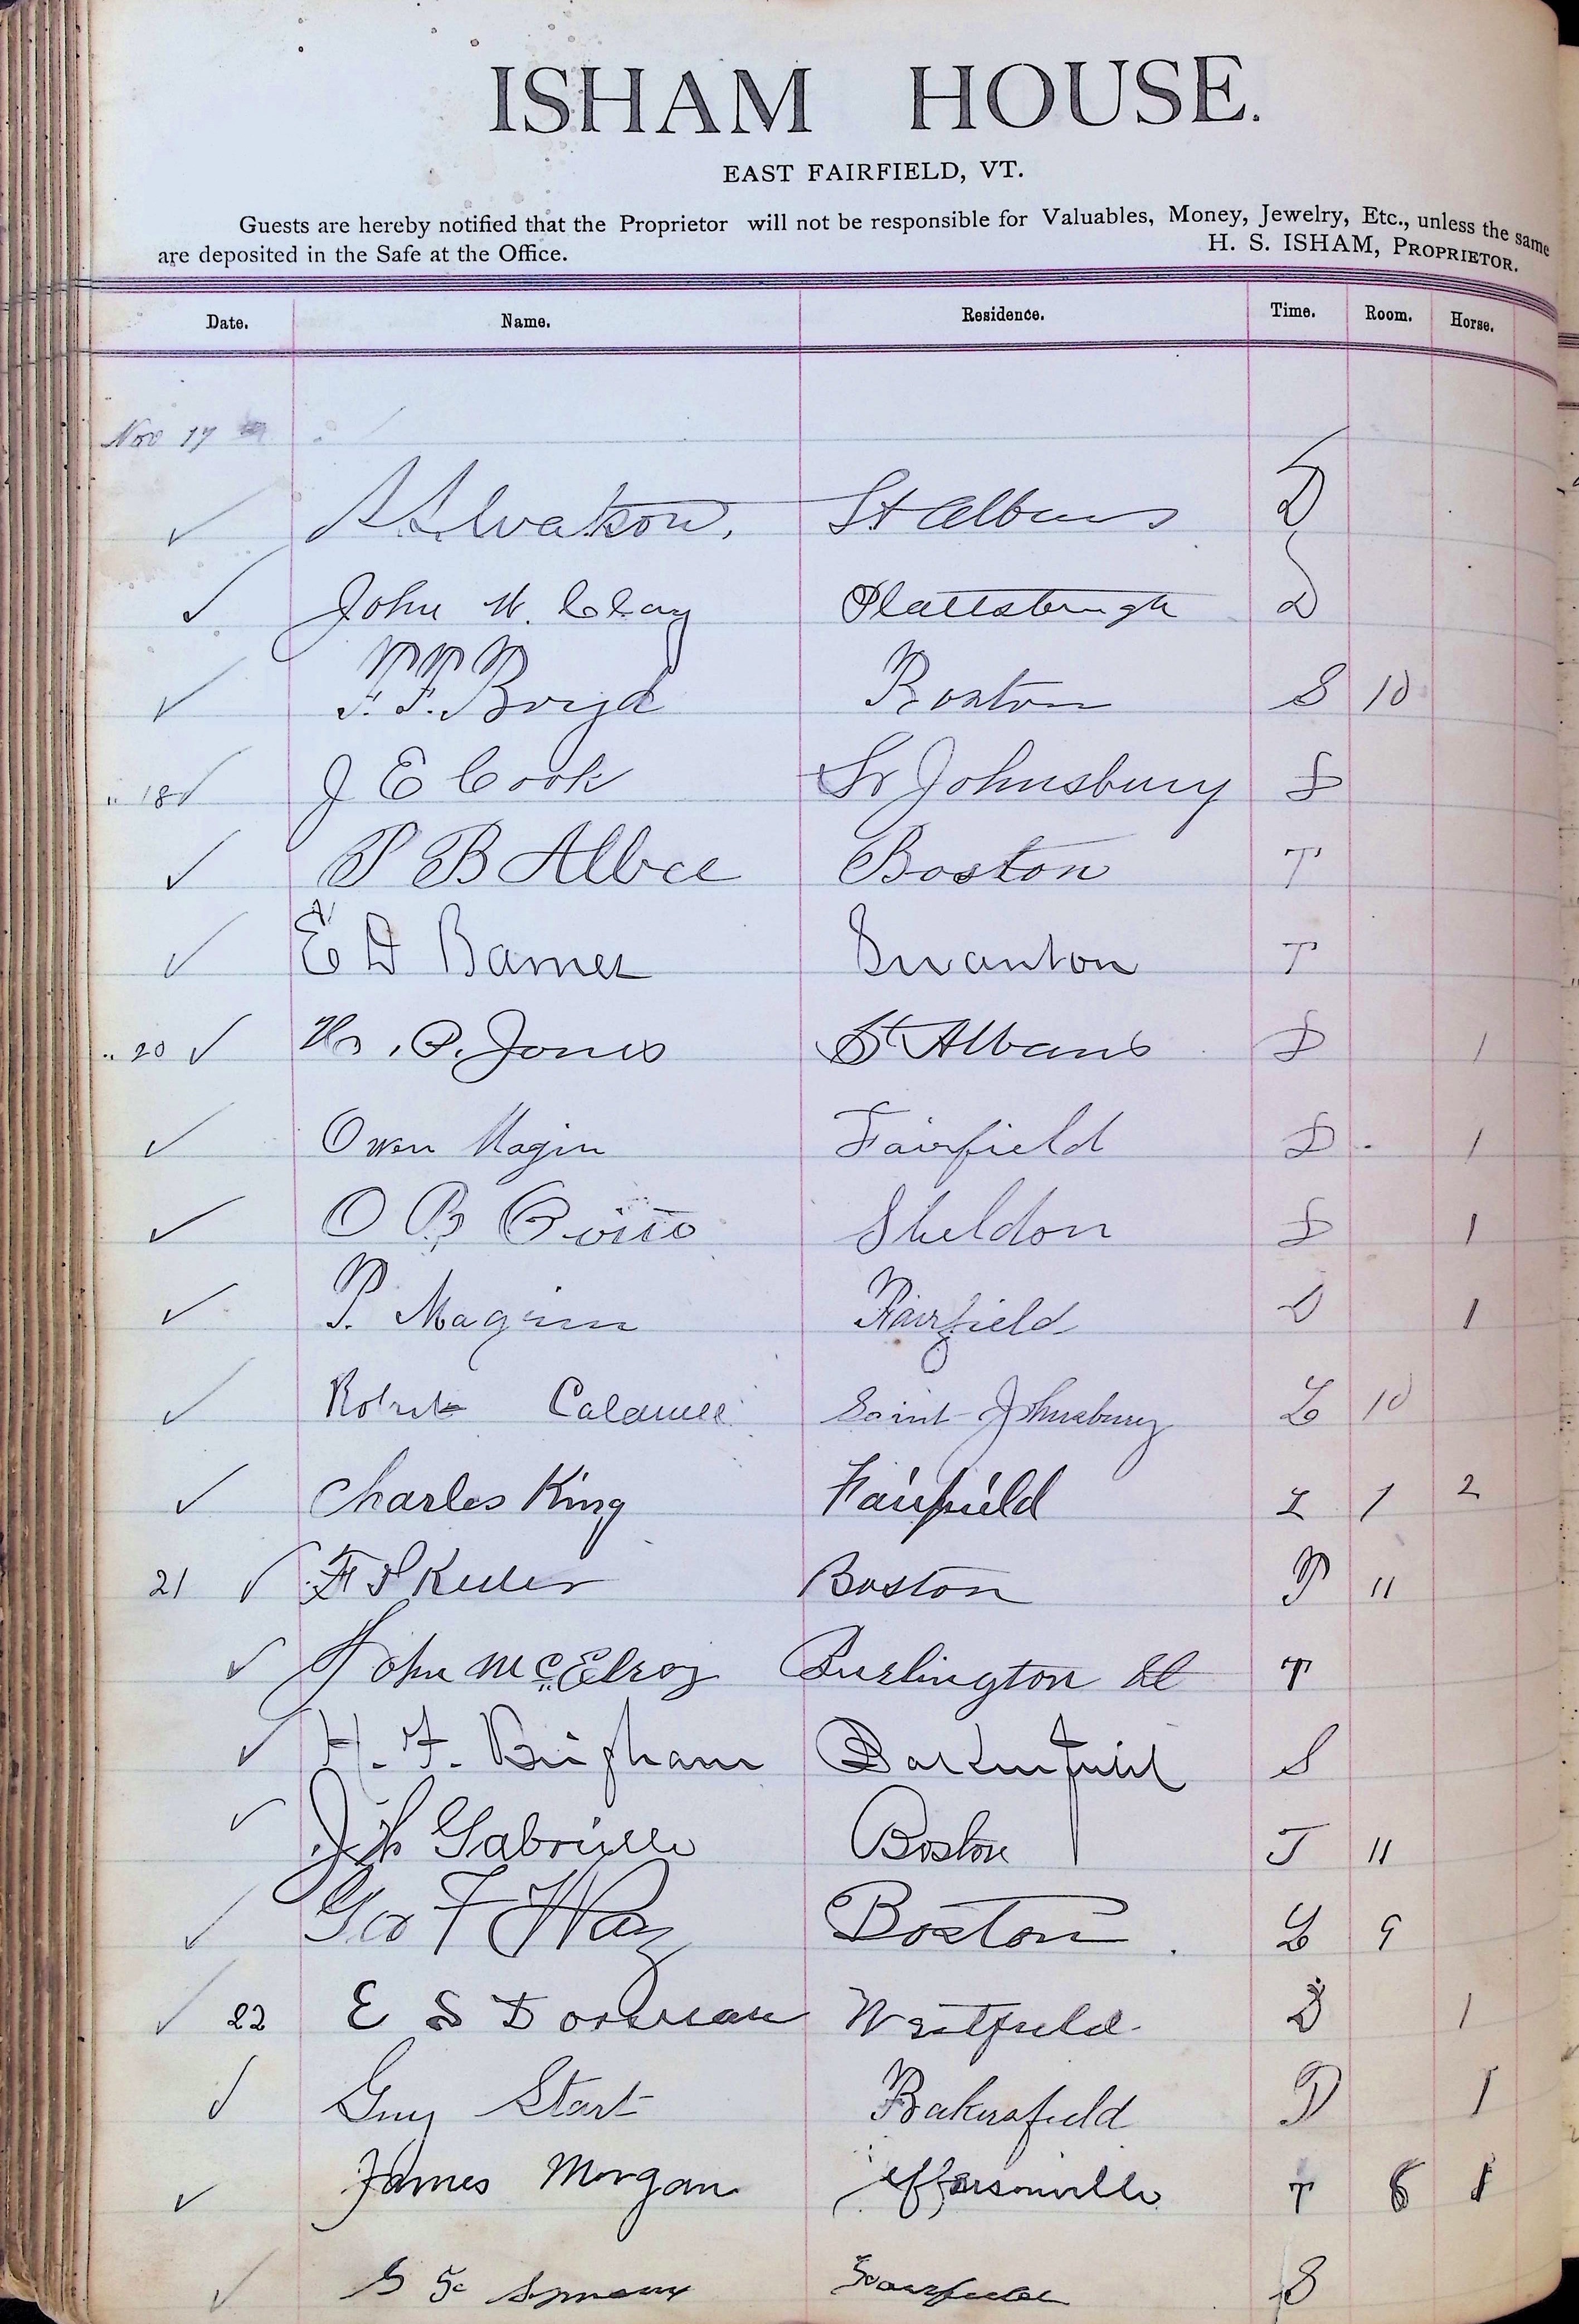 ISHAM HOUSE.
EAST FAIRFIELD, VT.
Guests are hereby notified that the Proprietor will not be responsible for Valuables, Money, Jewelry, Etc., unless the same
are deposited in the Safe at the Office.
H. S. ISHAM, PROPRIETOR.
Date. Name. Residence. Time. Room. Horse.
Nov 17
Watson, St Albans D
John W. Clay Plattsburgh D
F. F. Boyd Boston S 10
" 18 J E Cook St Johnsbury D
P B Albee Boston T
E D Barnes Swanton T
" 20 P. Jones St Albans D 1
Owen Magin Fairfield D 1
O B Sheldon D 1
P. Maginn Fairfield D 1
Robert Saint Johnsbury L 10
Charles King Fairfield L 1 2
21 Boston 11
John McElroy Burlington Vt T
H. F. Brigham Bakersfield S
Boston T 11
Geo F Way Boston L 9
22 E S Dorman Westfield D 1
Guy Start Bakersfield D 1
James Morgan Jeffersonville T 6 1
Fairfield S